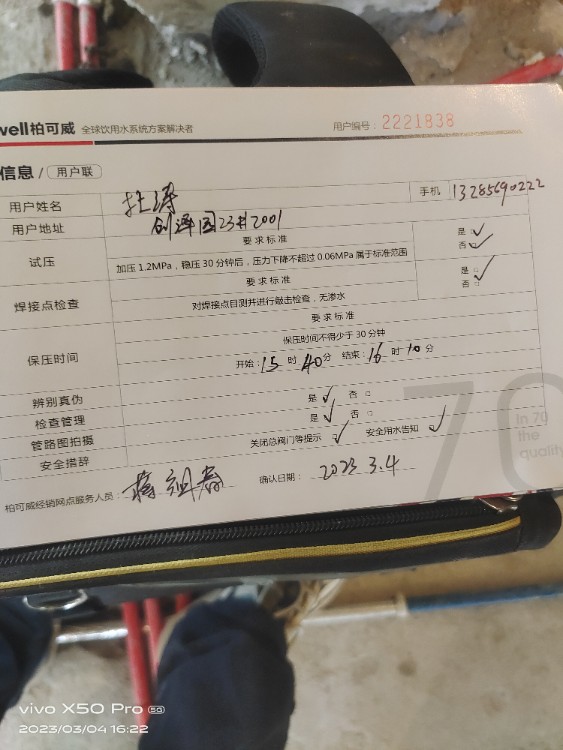 well柏可威 全球饮用水系统方案解决者 用户编号：2221838
信息/ 用户联
用户姓名 杜涛 手机 13285690222
用户地址 创泽园23#2001
要求标准
试压 加压1.2MPa，稳压30分钟后，压力下降不超过0.06MPa属于标准范围 是：✓ 否：✓
要求标准
焊接点检查 对焊接点目测并进行敲击检查，无渗水 是：□ ✓ 否□
要求标准
保压时间 保压时间不得少于30分钟
开始：15时40分 结束：16时10分
辨别真伪 是 ✓ 否 □
检查管理 是 ✓ 否 □
管路图拍摄
安全措辞 关闭总阀门等提示 ✓ 安全用水告知 ✓
柏可威经销网点服务人员： 确认日期： 2023.3.4
70
In 70
the
quality
vivo X50 Pro 5G
2023/03/04 16:22